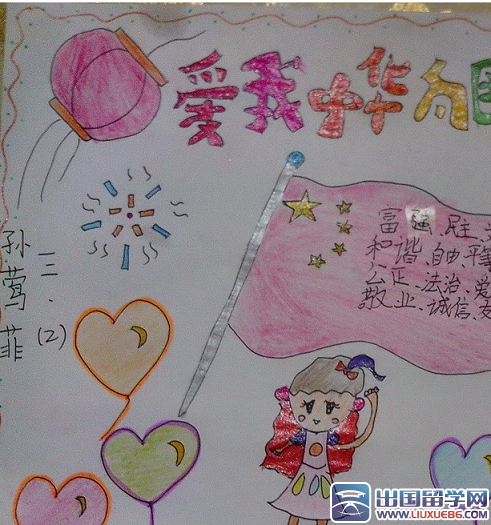 爱我中华为
富强、民主、
和谐、自由、平等
公正、法治、爱
敬业、诚信、友
孙莺菲
三.(2)
出国留学网
WWW.LIUXUE86.COM